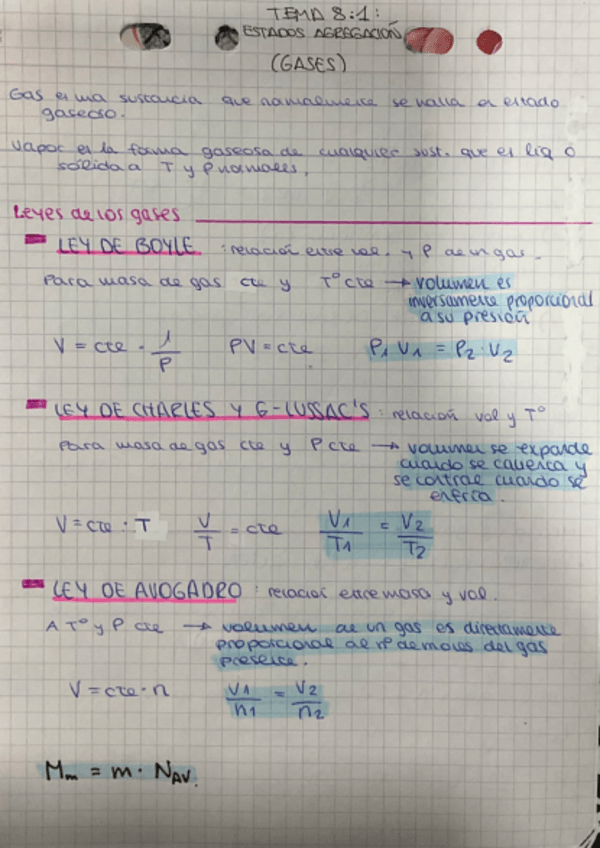 TEMA 8.1:
ESTADOS AGREGACIÓN
(GASES)
Gas es una sustancia que normalmente se halla en estado
gaseoso.
Vapor es la forma gaseosa de cualquier sust. que es liq o
sólida a T y P normales.
Leyes de los gases
LEY DE BOYLE : relación entre vol. y P de un gas.
Para masa de gas cte y Tº cte → volumen es
inversamente proporcional
a su presión
V = cte · 1/P PV = cte P1 V1 = P2 · V2
LEY DE CHARLES Y G-LUSSAC'S : relación vol y Tº
Para masa de gas cte y P cte → volumen se expande
cuando se calienta y
se contrae cuando se
enfría.
V = cte · T V/T = cte V1/T1 = V2/T2
LEY DE AVOGADRO : relación entre masa y vol.
A Tº y P cte → volumen de un gas es directamente
proporcional de nº de moles del gas
presente.
V = cte · n V1/n1 = V2/n2
Mm = m · NAV.